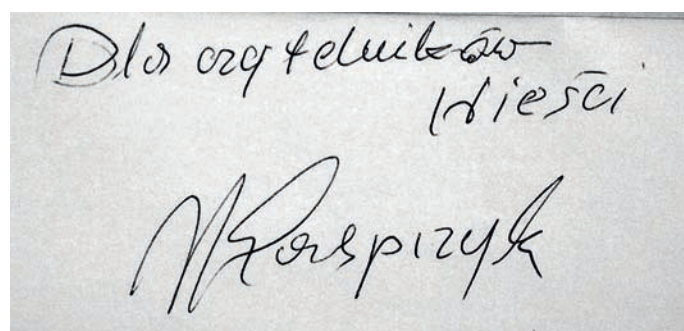 Dla czytelników
Wieści
J Kasprzyk